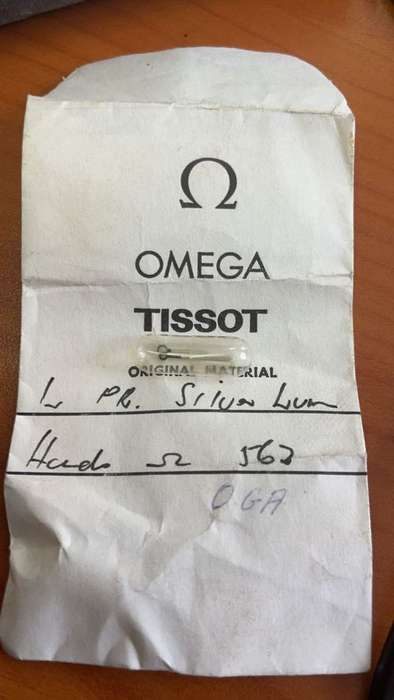 Ω
OMEGA
TISSOT
ORIGINAL MATERIAL
1 PR. Silver Lum
Hands Ω 562
OGA